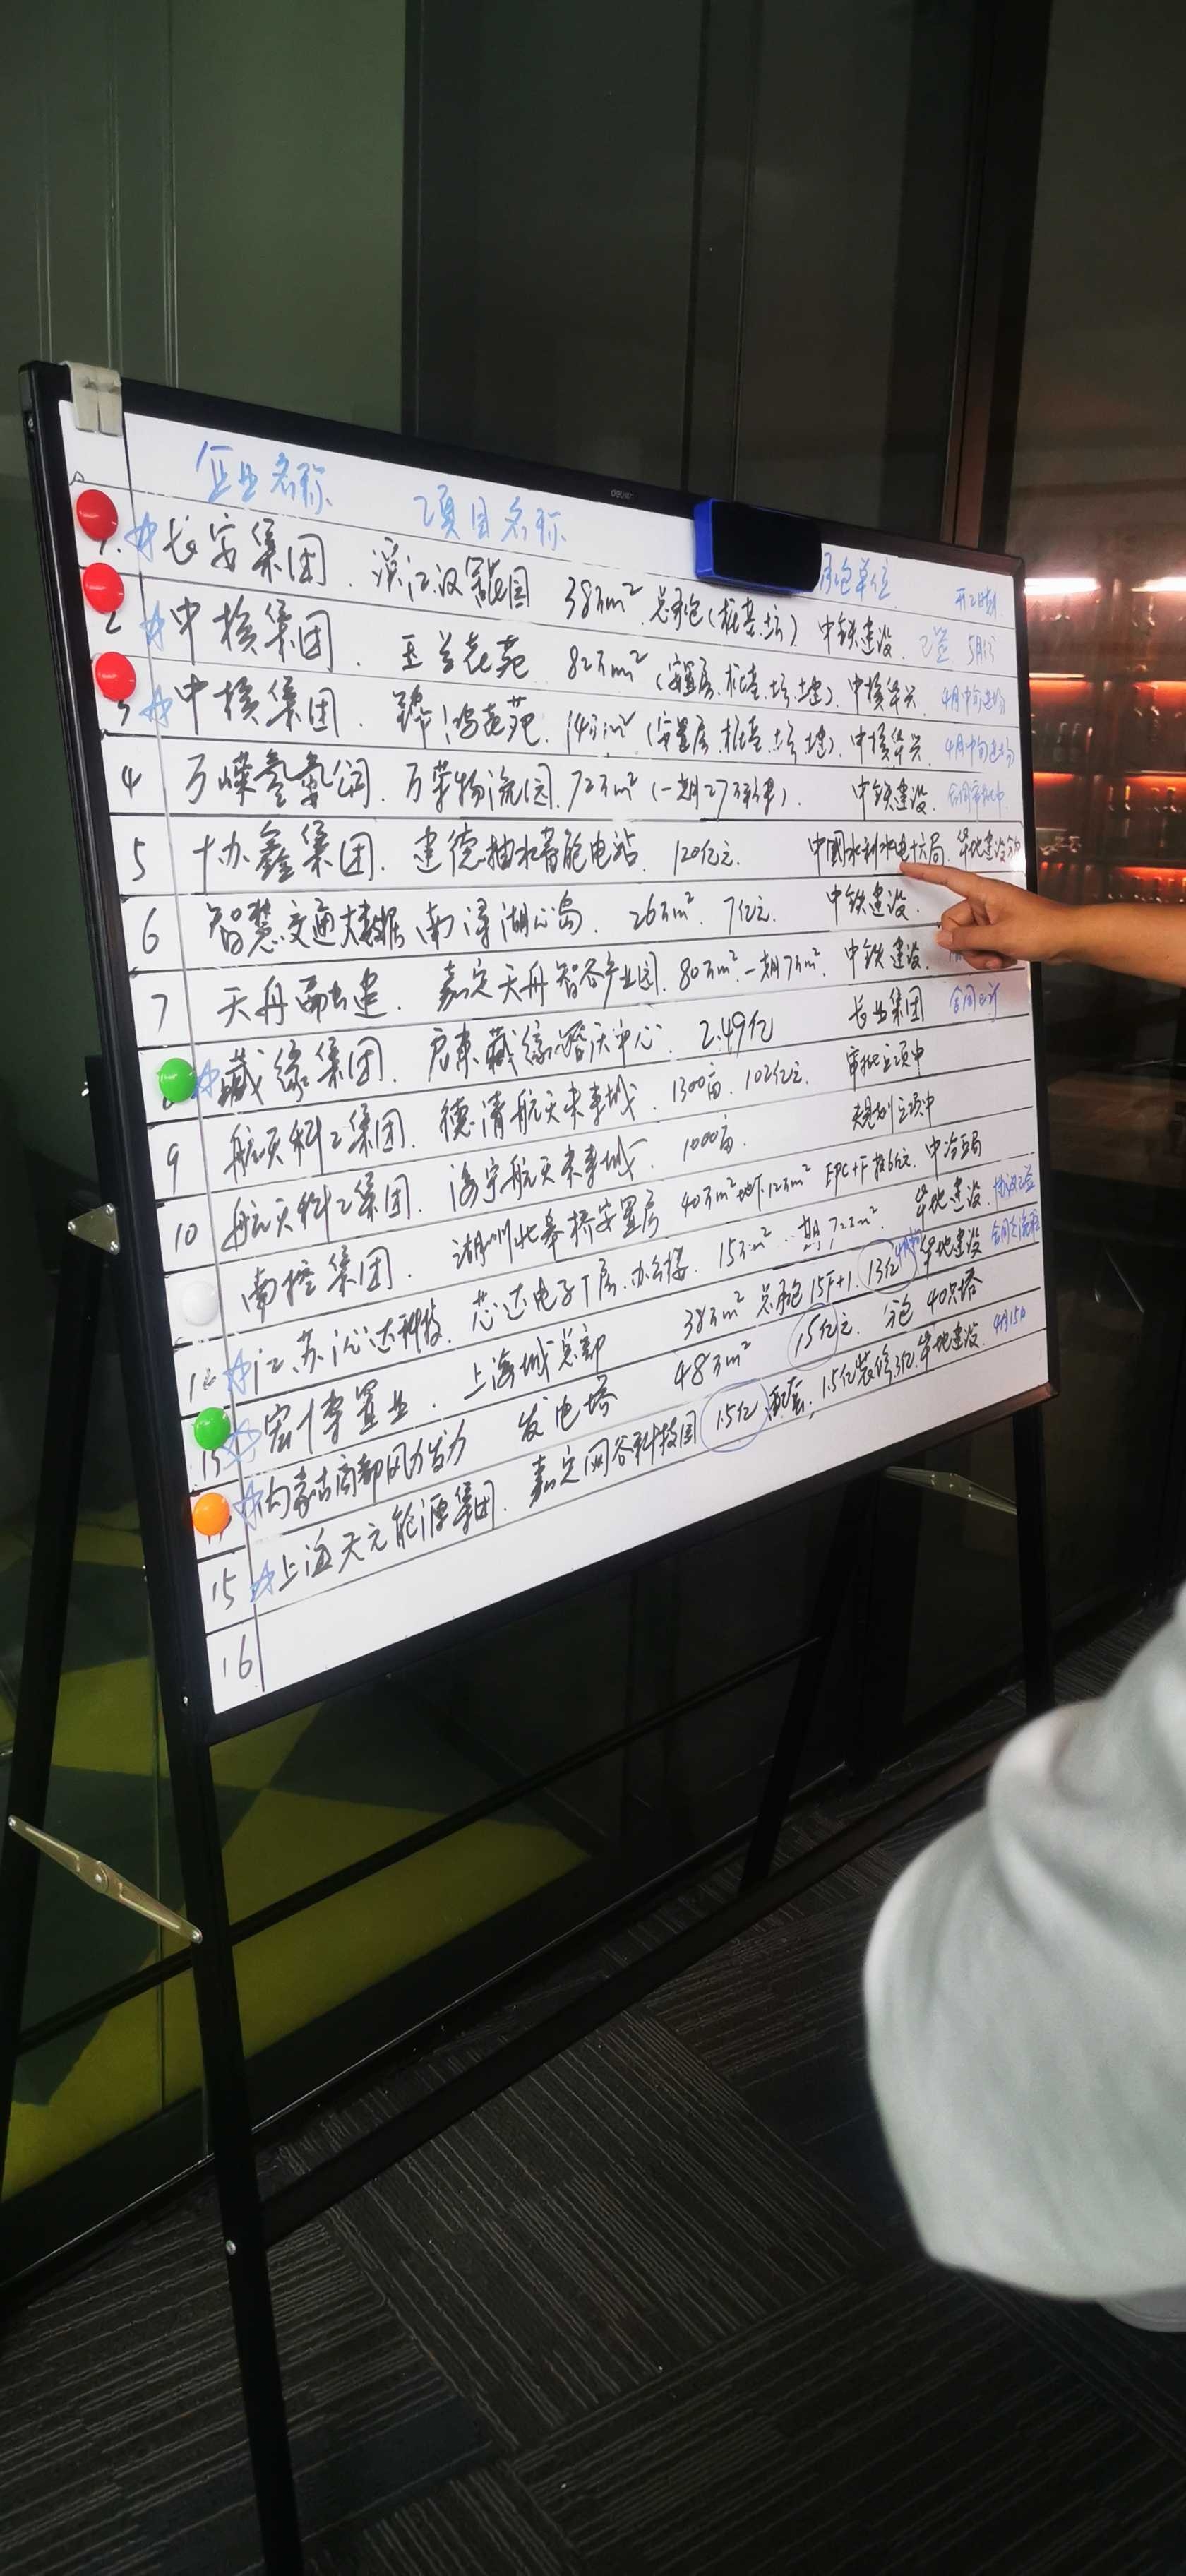 deli
企业名称 项目名称 承包单位 开工时间
1. 长安集团. 滨江汉 园 38万m² 总承包(桩基.土方) 中铁建设. 已签 5月份
2 中核集团. 玉兰花苑 82万m² (安置房.桩基.土方.土建). 中核华兴 4月中旬进场
3 中核集团. 鸿花苑. 14万m² (安置房.桩基.土方.土建). 中核华兴 4月中旬进场
4 万嵘 公司. 万荣物流园. 72万m² (一期27万 ). 中铁建设. 合同审批中
5 十办鑫集团. 建德抽水蓄能电站. 120亿元. 中国水利水电十六局. 华地建设
6 智慧交通大数据 南浔湖心岛. 26万m². 7亿元. 中铁建设.
7 天舟 建. 嘉定天舟智谷产业园. 80万m². 一期7万m². 中铁建设.
藏缘集团. 启东藏缘婚庆中心. 2.49亿 长业集团 合同已订
9 航天科工集团. 德清航天未来城. 1300亩. 102亿元. 审批立项中
10 航天科工集团. 海宁航天未来城. 1000亩. 规划立项中
南控集团. 湖州北奉桥安置房 40万m² 地下12万m² EPC+F 投6亿元. 中冶五局
12 江苏 达科技. 芯达电子厂房.办公楼. 15万m². 一期7.2万m². 华地建设. 协议已签
13 宏博置业. 上海城总部 38万m² 总承包 15F+1. 13亿 华地建设
内蒙古商都风力发力 发电塔 48万m² 15亿元. 分包 40只塔
15 上海天元能源集团. 嘉定网谷科技园 1.5亿 配套. 1.5亿装修3亿. 华地建设. 4月15日
16